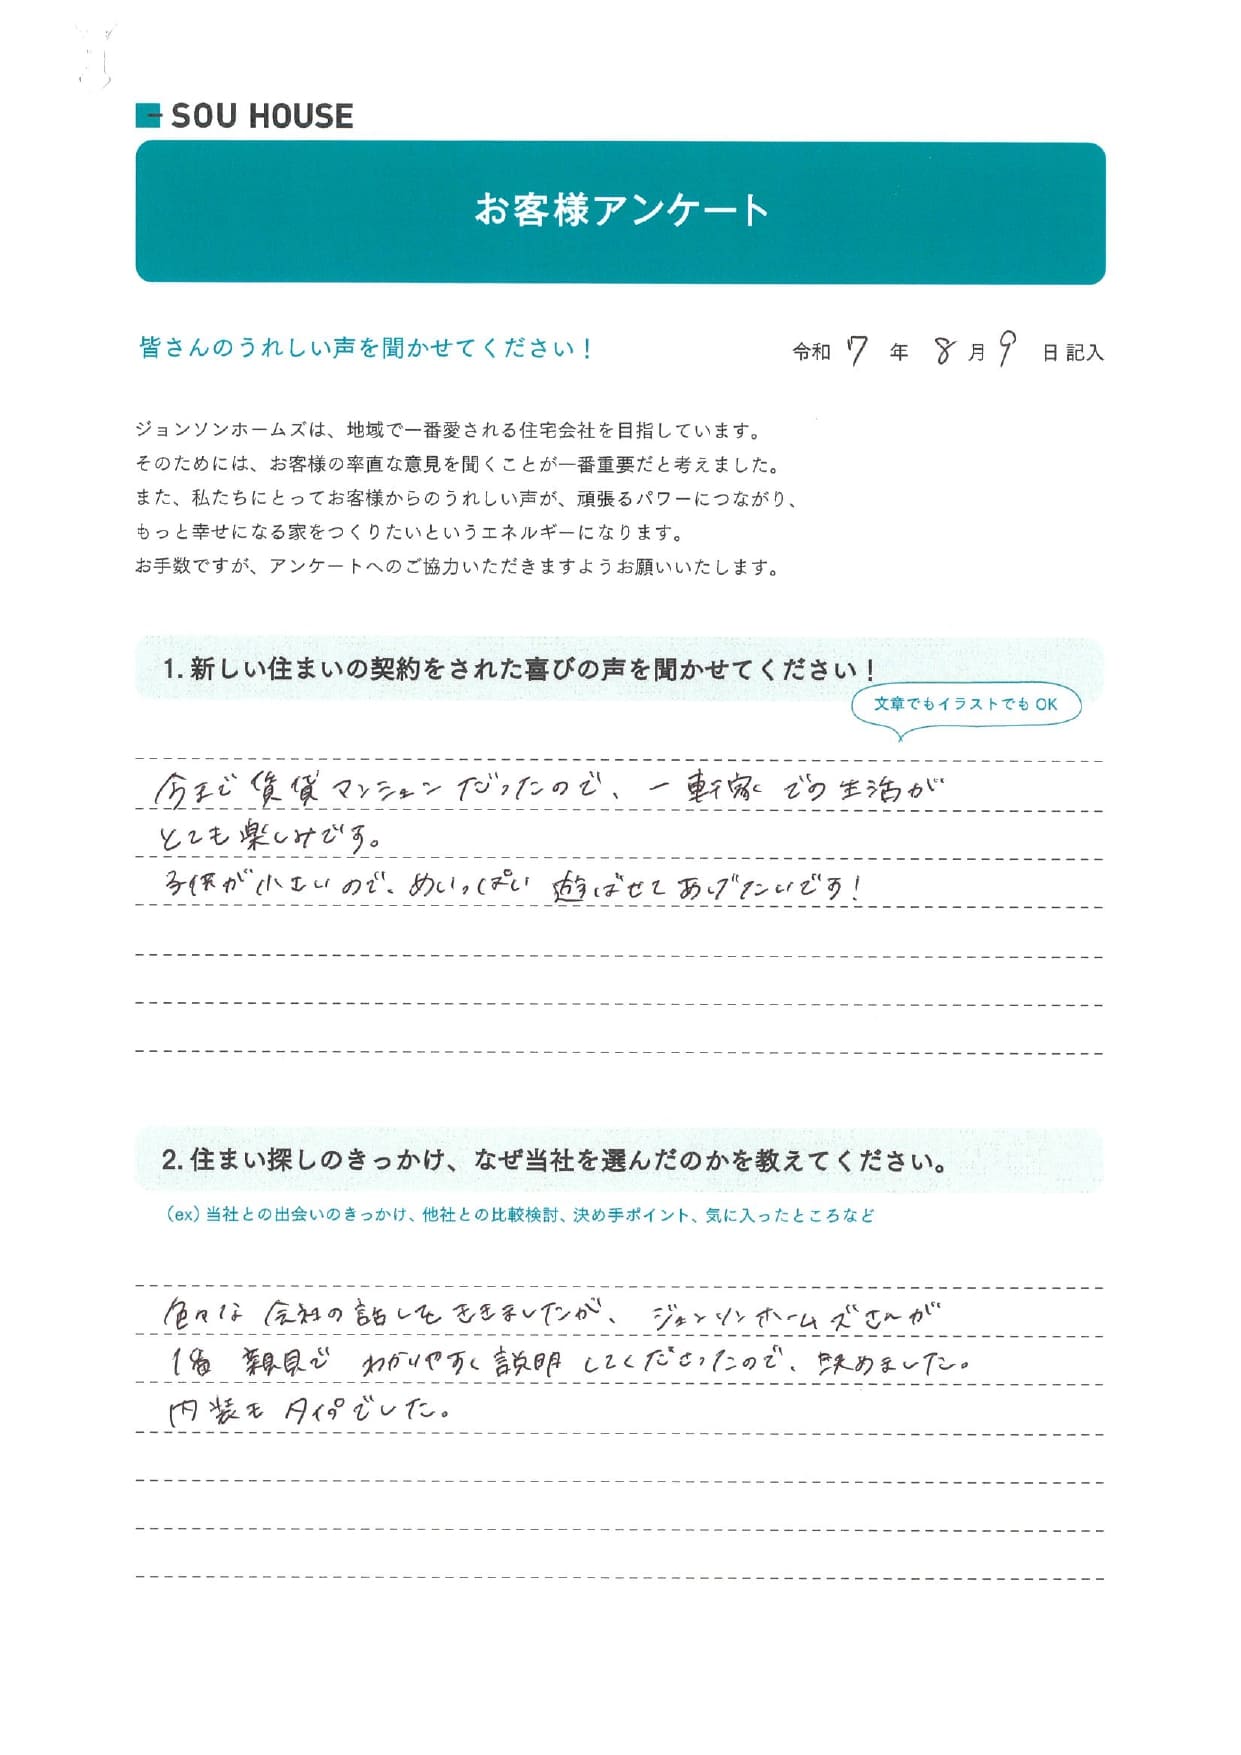 SOU HOUSE
お客様アンケート
皆さんのうれしい声を聞かせてください！
令和 7 年 8 月 9 日 記入
ジョンソンホームズは、地域で一番愛される住宅会社を目指しています。
そのためには、お客様の率直な意見を聞くことが一番重要だと考えました。
また、私たちにとってお客様からのうれしい声が、頑張るパワーにつながり、
もっと幸せになる家をつくりたいというエネルギーになります。
お手数ですが、アンケートへのご協力いただきますようお願いいたします。
1. 新しい住まいの契約をされた喜びの声を聞かせてください！
文章でもイラストでも OK
今まで賃貸マンションだったので、一軒家での生活が
とても楽しみです。
子供が小さいので、めいっぱい遊ばせてあげたいです！
2. 住まい探しのきっかけ、なぜ当社を選んだのかを教えてください。
（ex）当社との出会いのきっかけ、他社との比較検討、決め手ポイント、気に入ったところなど
色々な会社の話しをききましたが、ジョンソンホームズさんが
1番 親身で わかりやすく説明してくださったので、決めました。
内装もタイプでした。